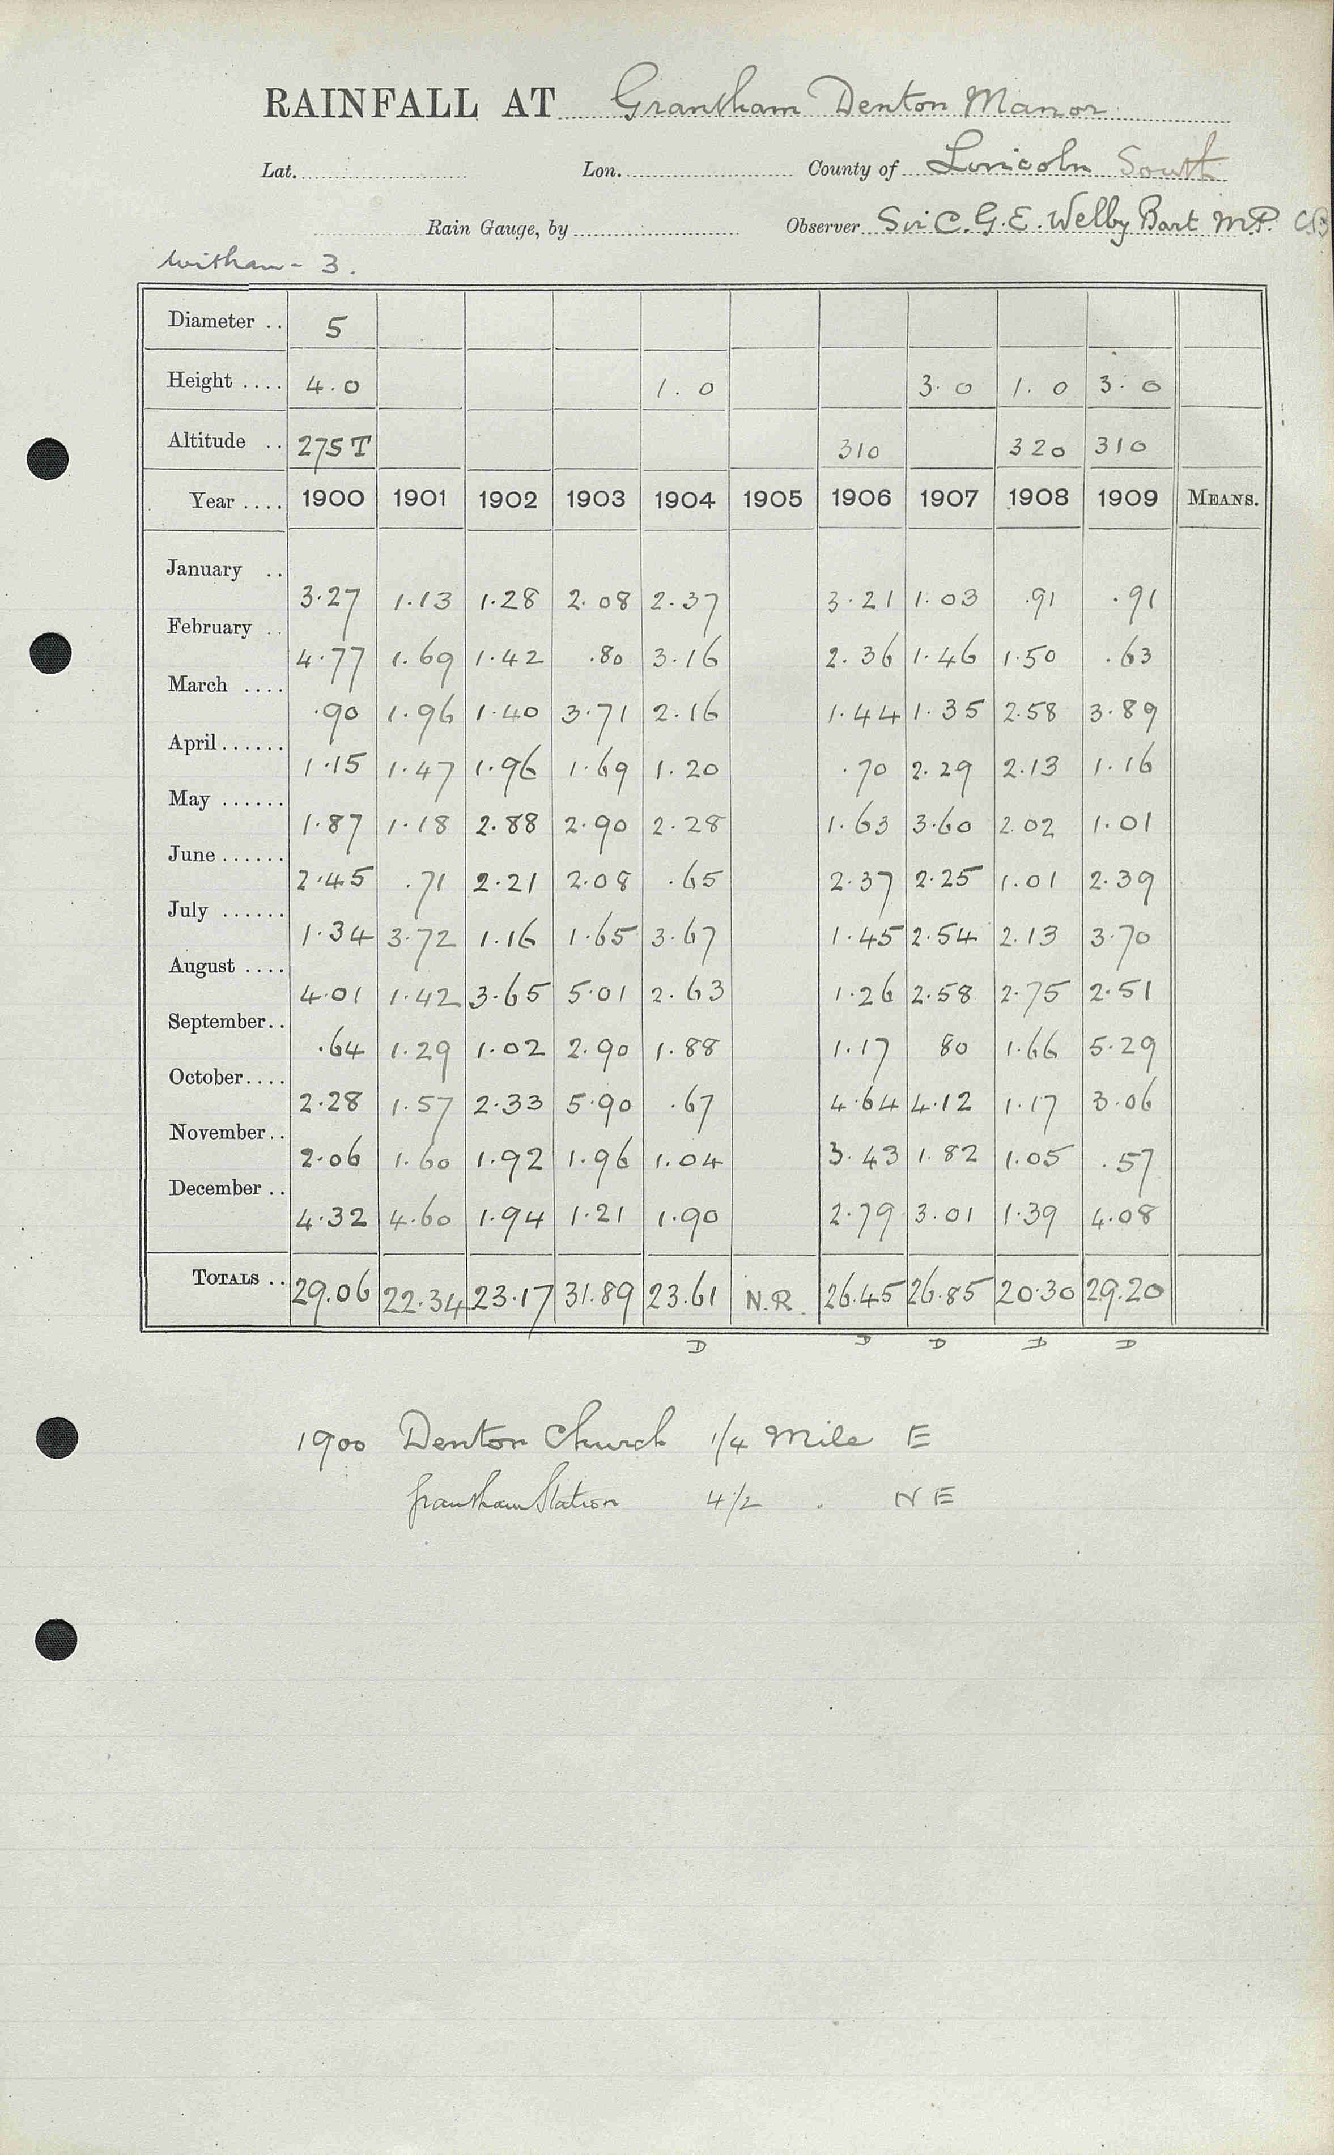 RAINFALL AT Grantham Denton Manor
Lat. Lon. County of Lincoln South
Rain Gauge, by Observer Sir C. G. E. Welby Bart M.P. CB
Witham - 3.
Diameter .. 5
Height .... 4.0 1.0 3.0 1.0 3.0
Altitude .. 275 T 310 320 310
Year .... 1900 1901 1902 1903 1904 1905 1906 1907 1908 1909 MEANS.
January .. 3.27 1.13 1.28 2.08 2.37 3.21 1.03 .91 .91
February .. 4.77 1.69 1.42 .80 3.16 2.36 1.46 1.50 .63
March .... .90 1.96 1.40 3.71 2.16 1.44 1.35 2.58 3.89
April...... 1.15 1.47 1.96 1.69 1.20 .70 2.29 2.13 1.16
May ...... 1.87 1.18 2.88 2.90 2.28 1.63 3.60 2.02 1.01
June...... 2.45 .71 2.21 2.08 .65 2.37 2.25 1.01 2.39
July ...... 1.34 3.72 1.16 1.65 3.67 1.45 2.54 2.13 3.70
August .... 4.01 1.42 3.65 5.01 2.63 1.26 2.58 2.75 2.51
September.. .64 1.29 1.02 2.90 1.88 1.17 80 1.66 5.29
October.... 2.28 1.57 2.33 5.90 .67 4.64 4.12 1.17 3.06
November.. 2.06 1.60 1.92 1.96 1.04 3.43 1.82 1.05 .57
December .. 4.32 4.60 1.94 1.21 1.90 2.79 3.01 1.39 4.08
TOTALS .. 29.06 22.34 23.17 31.89 23.61 N.R. 26.45 26.85 20.30 29.20
D D D D D
1900 Denton Church 1/4 Mile E
Grantham Station 4 1/2 . NE